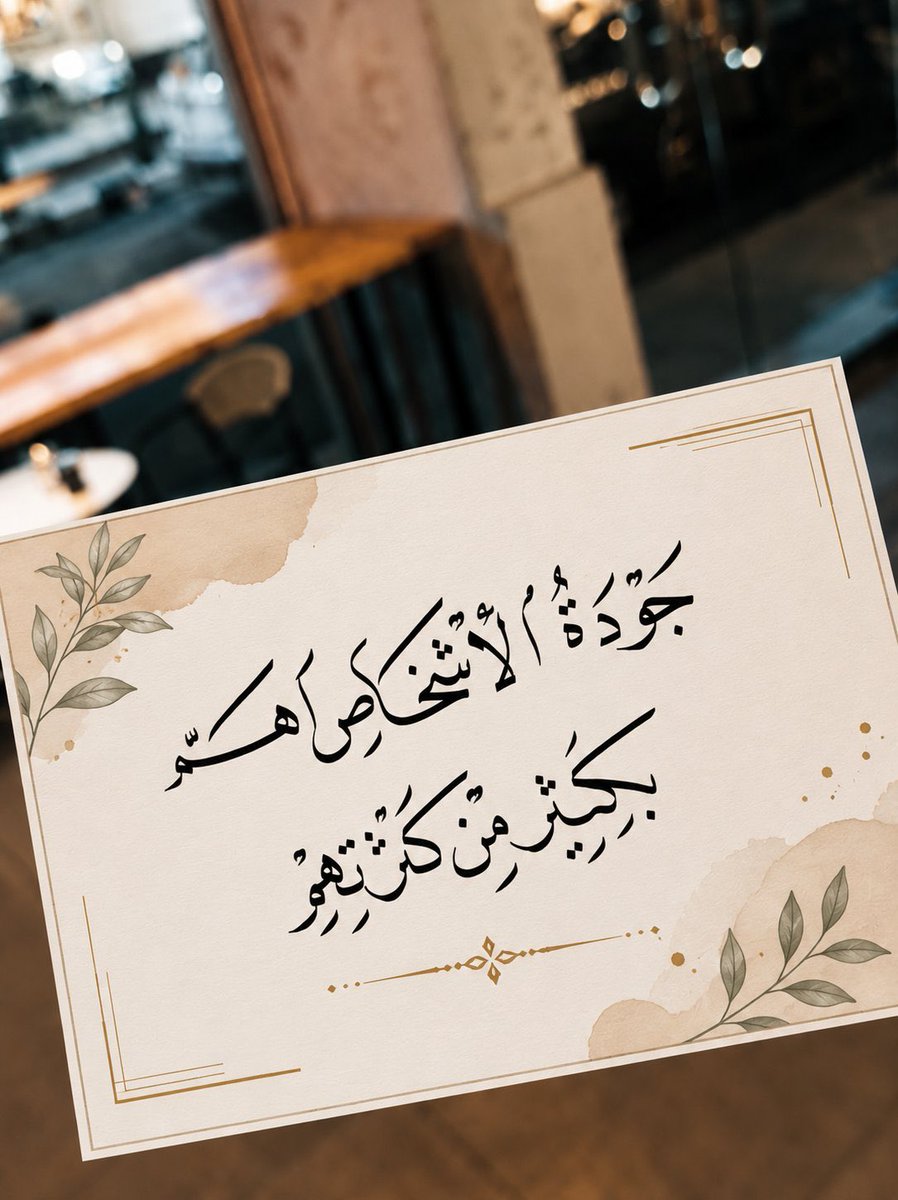 جَوْدَةُ الْأَشْخَاصِ أَهَمّ
بِكَثِيرٍ مِنْ كَثْرَتِهِمْ